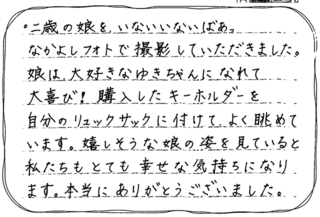 ・二歳の娘を いないいないばあっ。
なかよしフォトで撮影していただきました。
娘は大好きなゆきちゃんになれて
大喜び! 購入したキーホルダーを
自分のリュックサックに付けて よく眺めて
います。嬉しそうな娘の姿を見ていると
私たちもとても幸せな気持ちになり
ます。本当にありがとうございました。